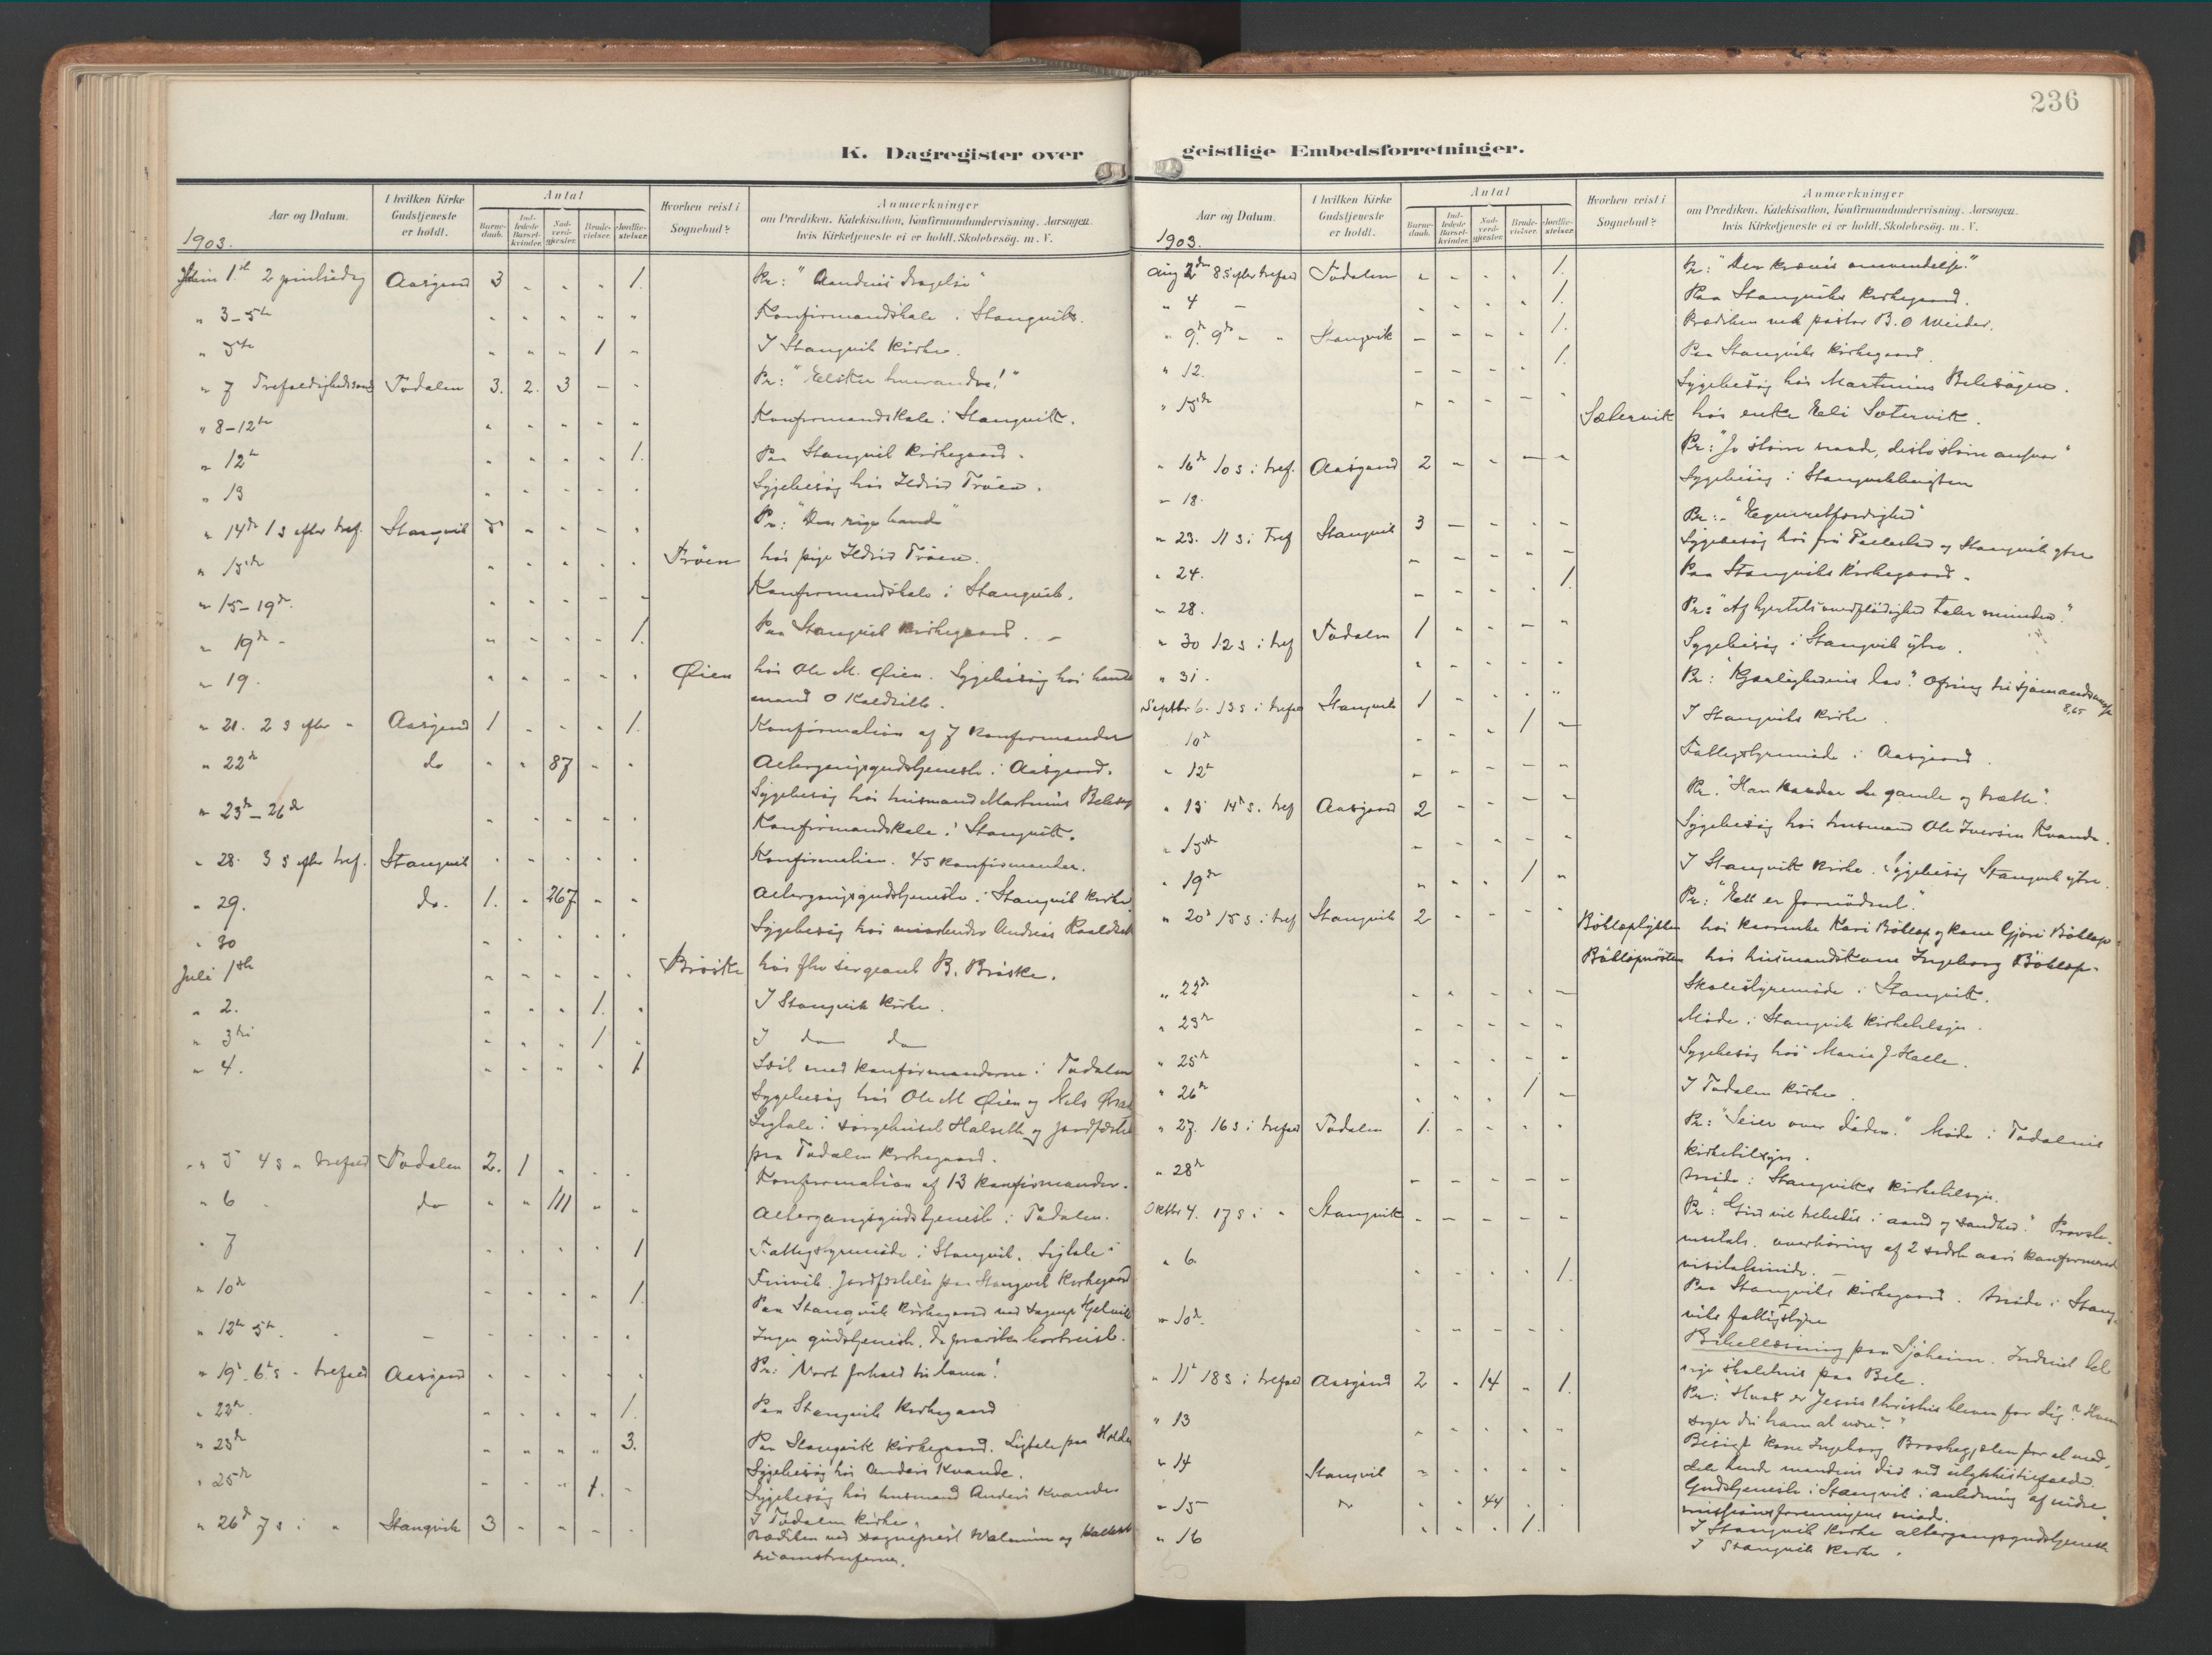 236
K. Dagregister over
Aar og Datum.
I hvilken Kirke Gudstjeneste er holdt.
Antal
Barnedaab.
Indledede Barselkvinder.
Nadverdgjæster.
Brudevielser.
Jordfæstelser.
Hvorhen reist i Sognebud?
Anmærkninger
om Prædiken, Katekisation, Konfirmandundervisning, Aarsagen,
hvis Kirketjeneste ei er holdt, Skolebesøg. m. V.
1903.
1ste 2 pintsedag Aasgaard 3 - - - 1. Pr: "Aandens
" 3-5te - - - - - Konfirmandskole i Stangvik.
" 5te - - - 1 - I Stangvik kirke.
" 7 Trefoldighedssønd Todalen 3. 2. 3 - - Pr: "Elsker hverandre!"
" 8-12te - - - - - Konfirmandskole i Stangvik.
" 12te - - - - 1. Paa Stangvik kirkegaard.
" 13 - - - - - Sygebesøg hos Ildrid Trøen.
" 14de 1 s efter tref. Stangvik 5 - - - - Pr: "Den rige bonde"
" 15de - - - - - Trøen hos pige Ildrid Trøen.
" 15-19de - - - - - Konfirmandskole i Stangvik.
" 19de - - - - - 1. Paa Stangvik kirkegaard. -
" 19. - - - - - Øien hos Ole M. Øien. Sygebesøg hos
mand O
" 21. 2 s efter " Aasgaard 1 - - - 1. Konfirmation af 7 konfirmander
" 22de do - - 87 - - Altergangsgudstjeneste i Aasgaard.
" 23de-26de - - - - - Sygebesøg hos husmand Martinus
Konfirmandskole i Stangvik.
" 28. 3 s efter tref. Stangvik - - - - - Konfirmation. 45 konfirmander.
" 29. do. 1. - 267 - - Altergangsgudstjeneste i Stangvik kirke.
" 30 - - - - - Sygebesøg hos Andreas
Juli 1ste - - - - - Brøske hos fhv sergeant B. Brøske.
" 2. - - - 1. - I Stangvik kirke.
" 3die - - - 1 - I do do
" 4. - - - - 1 med konfirmanderne i Todalen
Sygebesøg hos Ole M Øien og Nels
Ligtale i sørgehuset Halseth og jordfæstelse
paa Todalen kirkegaard.
" 5 4 s " trefold Todalen 2. 1 - - - Konfirmation af 13 konfirmander.
" 6 do - - 111 - - Altergangsgudstjeneste i Todalen.
" 7 - - - - 1 Fattigstyremøde i Stangvik. Ligtale i
Jordfæstelse paa Stangvik kirkegaard
" 10de - - - - 1. Paa Stangvik kirkegaard
" 12te 5te - - - - - Ingen gudstjeneste, da presten bortreist.
" 19de 6te s " trefold Aasgaard - - - - - Pr: "Vort forhold til loven!
" 22de - - - - 1. Paa Stangvik kirkegaard
" 23de - - - - 3. Paa Stangvik kirkegaard. Ligtale paa
Sygebesøg hos Anders Kvande.
" 25de - - - 1. - Sygebesøg hos husmand Anders Kvande
I Todalen kirke.
" 26de 7 s i " Stangvik 3 - - - - Prædiken ved sogneprest
geistlige Embedsforretninger.
Aar og Datum.
I hvilken Kirke Gudstjeneste er holdt.
Antal
Barnedaab.
Indledede Barselkvinder.
Nadverdgjæster.
Brudevielser.
Jordfæstelser.
Hvorhen reist i Sognebud?
Anmærkninger
om Prædiken, Katekisation, Konfirmandundervisning, Aarsagen,
hvis Kirketjeneste ei er holdt, Skolebesøg. m. V.
1903.
Aug 2den 8 s efter trefold Todalen - - - - 1. Pr: "Den omvendelse."
" 4 - - - - - 1. Paa Stangviks kirkegaard.
" 9de 9de " " Stangvik - - - - 1. Prædiken ved pastor B. O
" 12. - - - - 1. Paa Stangviks kirkegaard.
Sygebesøg hos Martinus
" 15de - - - - - Sætervik hos enke Eli Sætervik.
" 16de 10 s i tref. Aasgaard 2 - - - - Pr: "Jo større naade, desto større ansvar"
" 18. Sygebesøg i
" 23. 11 s i Tref Stangvik 3 - - - - Pr: "Egenretfærdighed"
" 24. - - - - - Sygebesøg hos og Stangvik ytre
" 28. - - - - 1. Paa Stangviks kirkegaard.
" 30 12 s i tref Todalen 1 - - - - Pr: "Af hjertets overflødighed taler munden."
" 31. - - - - - Sygebesøg i Stangvik ytre.
Septbr 6. 13 s i trefold Stangvik 1 - - - - Pr: "Kjærlighedens lov." Ofring til sjømandsmis.
8,65
10de - - - 1 - I Stangviks kirke.
" 12te - - - - - Fattigstyremøde i Aasgaard.
" 13 14de s. tref Aasgaard 2 - - - - Pr. "Han kader de gamle og trætte".
" 15de - - - - - Sygebesøg hos husmand Ole Iversen Kvande.
" 19de - - - 1 - I Stangvik kirke. Sygebesøg Stangvik ytre.
" 20de 15 s i tref Stangvik 2 - - - - Pr: "Ett er fornødent."
Bøklephytten hos Kari Bøklep og kone Gjøri Bøklep.
hos husmandskone Ingeborg Bøklep.
" 22de - - - - - Skolestyremøde i Stangvik.
" 23de - - - - - Møde i Stangvik kirketilsyn.
" 25de - - - - - Sygebesøg hos Marie J. Halle.
" 26de - - - 1 - I Todalen kirke.
" 27. 16 s i trefold Todalen 1. - - - - Pr: "Seier over døden." Møde i Todalens
kirketilsyn.
" 28de - - - - - Møde i Stangviks kirketilsyn.
Oktbr 4. 17 s i " Stangvik - - - - - Pr: "Gud vil tilbedes i aand og sandhed." Provste-
visitats. overhøring af 2 sidste aars konfirmered
visitatsmøde. -
" 6. - - - - 1. Paa Stangviks kirkegaard. Møde i Stang-
viks fattigstyre
" 10de. - - - - - Bibellæsning paa Sjøheim.
" 11te 18 s i trefold Aasgaard 2 - 14 - 1. Pr: "Hvad er Jesus Christus bleven for dig? Hvem
siger du ham at være?"
" 13 - - - - - kone Ingeborg for at med-
dele hende mandens død ved ulykkestilfælde.
" 14 Stangvik - - - - - Gudstjeneste i Stangvik i anledning af indre-
missionsforeningens møde.
" 15 do - - 44 - - I Stangvik kirke altergangsgudstjeneste
" 16 - - - 1. - I Stangvik kirke.